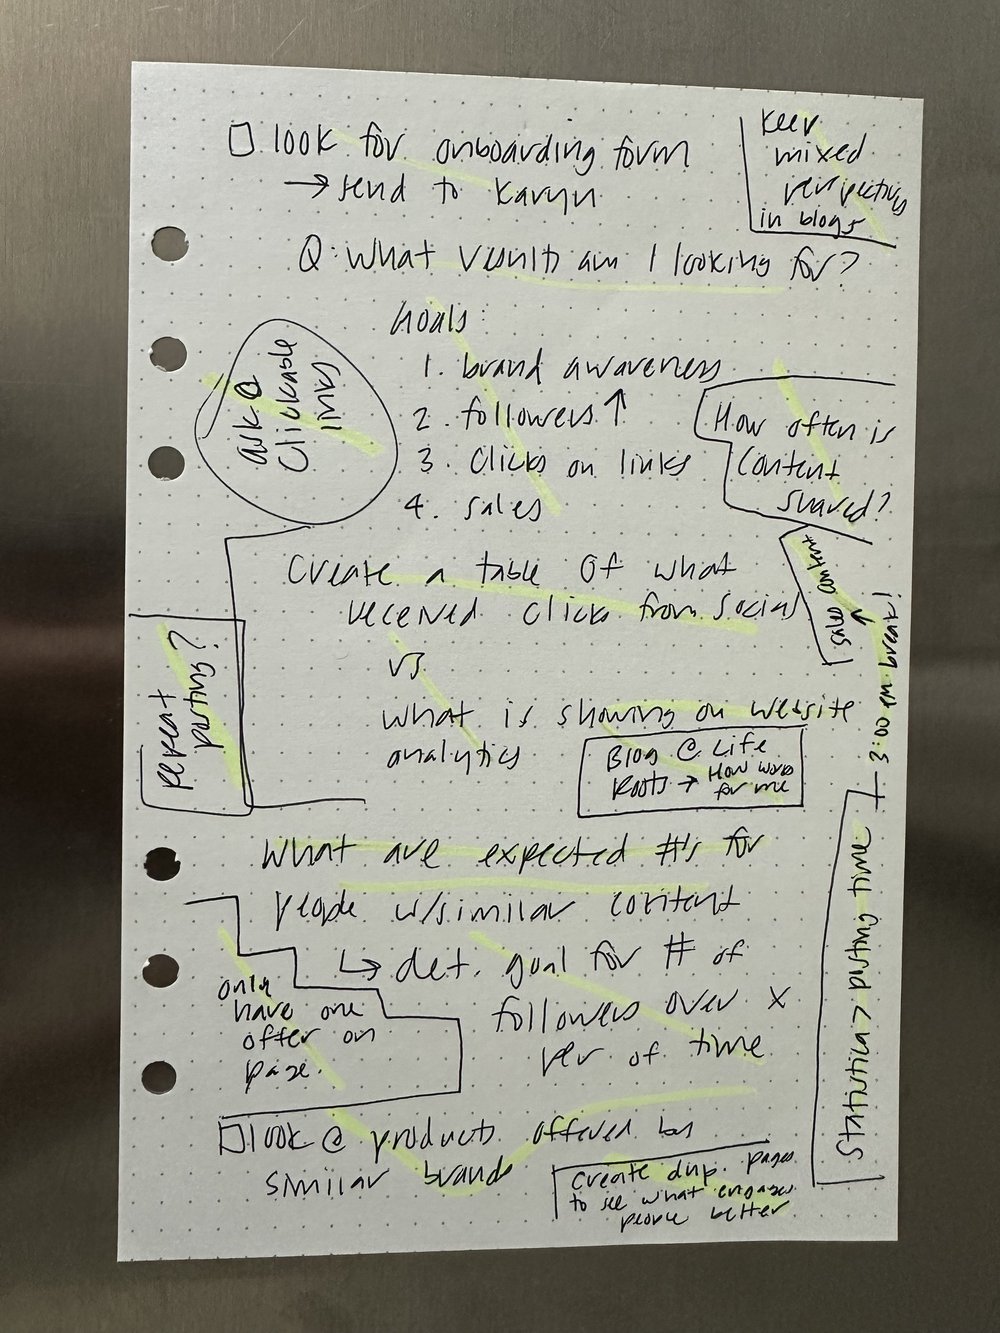 □ look for onboarding form
→ send to Karyn
keep
mixed
perspectives
in blogs
Q: What results am I looking for?
Goals:
1. brand awareness
2. followers ↑
3. clicks on links
4. sales
ask @
Clickable
links
How often is
content
shared?
Create a table of what
received clicks from social
vs
what is showing on website
analytics
sales content
↑
repeat
posting?
Blog @ Life
Roots → How works
for me
What are expected #'s for
people w/similar content
↳ det. goal for # of
followers over x
per. of time
only
have one
offer on
page.
Statistica > posting time
3:00 pm break!
□ look @ products offered by
similar brands
create dup. pages
to see what engages
people better